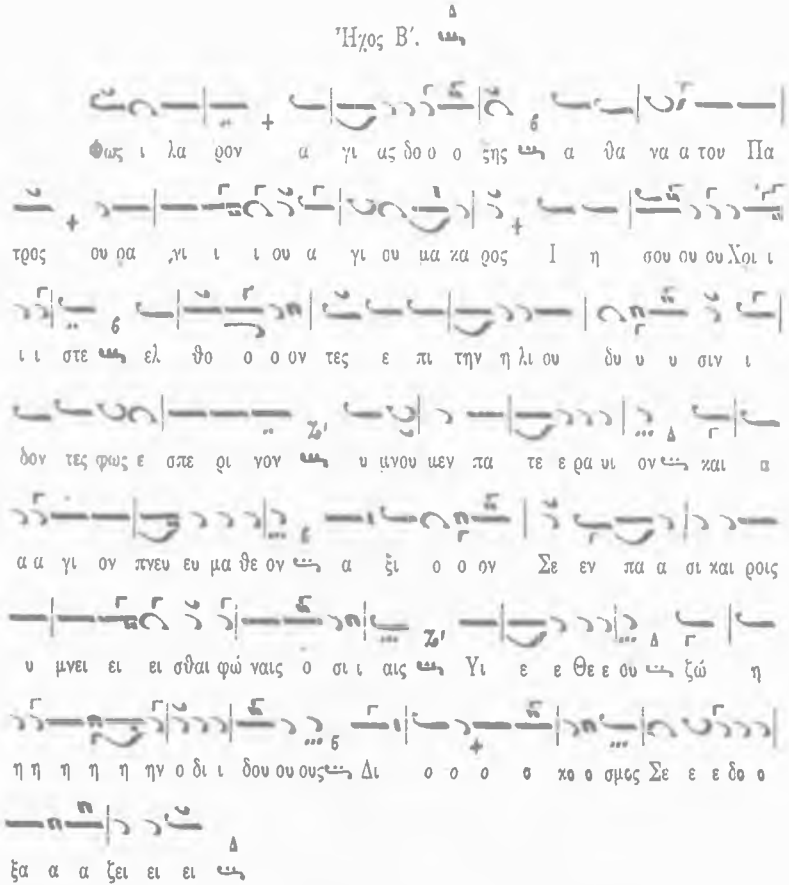 Ἦχος Β΄. Δ
Φως ι λα ρον α γι ας δο ο ο ξης α θα να α του Πα
τρος ου ρα νι ι ι ου α γι ου μα κα ρος Ι η σου ου ου Χρι ι
ι ι στε ελ θο ο ο ον τες ε πι την η λι ου δυ υ υ σιν ι
δον τες φως ε σπε ρι νον υ μνου μεν πα τε ε ρα υι ον και α
α α γι ον πνευ ευ μα θε ον α ξι ο ο ον Σε εν πα α σι και ροις
υ μνει ει ει σθαι φώ ναις ο σι ι αις Υι ε ε Θε ε ου ζώ η
η η η η η ην ο δι ι δου ου ους Δι ο ο ο ο κο ο σμος Σε ε ε δο ο
ξα α α ζει ει ει Δ